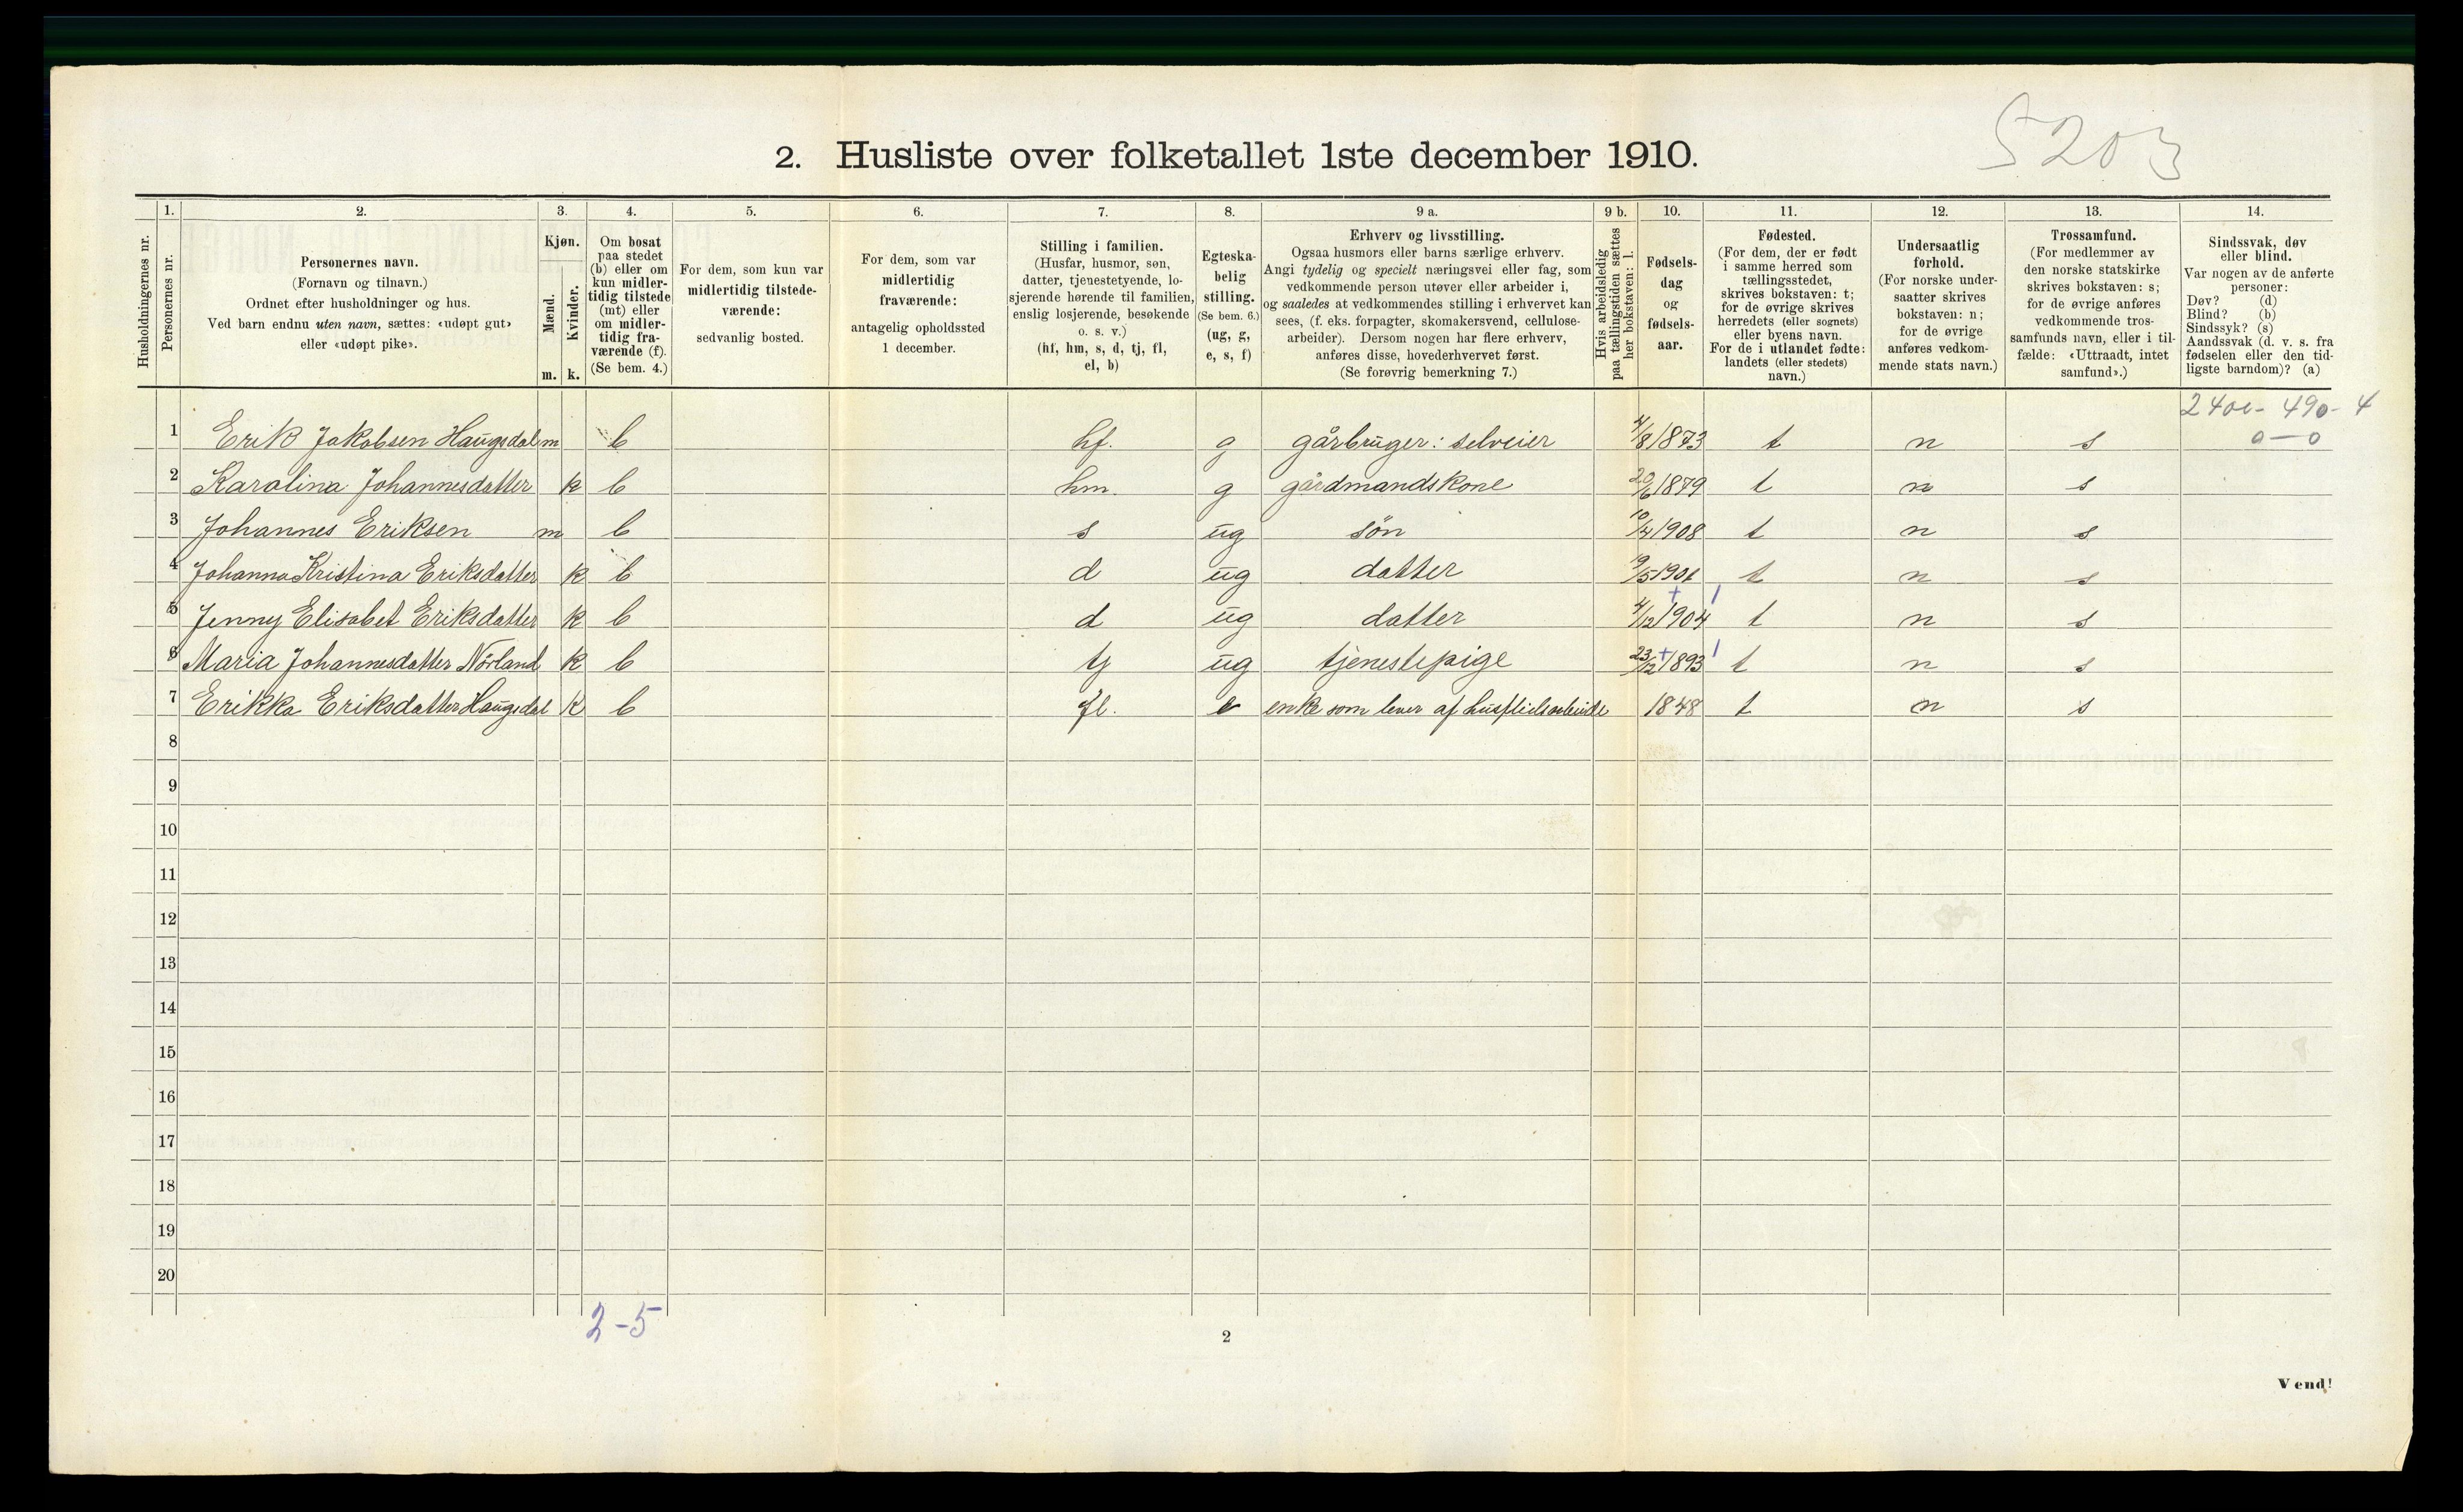 5203
2. Husliste over folketallet 1ste december 1910.
Husholdningernes nr.
1.
Personernes nr.
2.
Personernes navn.
(Fornavn og tilnavn.)
Ordnet efter husholdninger og hus.
Ved barn endnu uten navn, sættes: «udøpt gut»
eller «udøpt pike».
3.
Kjøn.
Mænd.
Kvinder.
m. k.
4.
Om bosat
paa stedet
(b) eller om
kun midler-
tidig tilstede
(mt) eller
om midler-
tidig fra-
værende (f).
(Se bem. 4.)
5.
For dem, som kun var
midlertidig tilstede-
værende:
sedvanlig bosted.
6.
For dem, som var
midlertidig
fraværende:
antagelig opholdssted
1 december.
7.
Stilling i familien.
(Husfar, husmor, søn,
datter, tjenestetyende, lo-
sjerende hørende til familien,
enslig losjerende, besøkende
o. s. v.)
(hf, hm, s, d, tj, fl,
el, b)
8.
Egteska-
belig
stilling.
(Se bem. 6.)
(ug, g,
e, s, f)
9 a.
Erhverv og livsstilling.
Ogsaa husmors eller barns særlige erhverv.
Angi tydelig og specielt næringsvei eller fag, som
vedkommende person utøver eller arbeider i,
og saaledes at vedkommendes stilling i erhvervet kan
sees, (f. eks. forpagter, skomakersvend, cellulose-
arbeider). Dersom nogen har flere erhverv,
anføres disse, hovederhvervet først.
(Se forøvrig bemerkning 7.)
9 b.
Hvis arbeidsledig
paa tællingstiden sættes
her bokstaven: l.
10.
Fødsels-
dag
og
fødsels-
aar.
11.
Fødested.
(For dem, der er født
i samme herred som
tællingsstedet,
skrives bokstaven: t;
for de øvrige skrives
herredets (eller sognets)
eller byens navn.
For de i utlandet fødte:
landets (eller stedets)
navn.)
12.
Undersaatlig
forhold.
(For norske under-
saatter skrives
bokstaven: n;
for de øvrige
anføres vedkom-
mende stats navn.)
13.
Trossamfund.
(For medlemmer av
den norske statskirke
skrives bokstaven: s;
for de øvrige anføres
vedkommende tros-
samfunds navn, eller i til-
fælde: «Uttraadt, intet
samfund».)
14.
Sindssvak, døv
eller blind.
Var nogen av de anførte
personer:
Døv? (d)
Blind? (b)
Sindssyk? (s)
Aandssvak (d. v. s. fra
fødselen eller den tid-
ligste barndom)? (a)
2400 - 490 - 4
0 - 0
1 Erik Jakobsen Haugsdal m b hf. g gårbruger: selveier 4/8 1873 t n s
2 Karolina Johannesdatter k b hm. g gårdmandskone 20/6 1879 t n s
3 Johannes Eriksen m b s ug søn 10/4 1908 t n s
4 Johanna Kristina Eriksdatter k b d ug datter 19/5 1901 t n s
5 Jenny Elisabet Eriksdatter k b d ug datter 4/12 1904 t n s
6 Maria Johannesdatter Nörland k b tj ug tjenestepige 23/12 1893 t n s
7 Erikka Eriksdatter Haugsdal k b fl. e enke som lever af husflidsarbeide 1848 t n s
8
9
10
11
12
13
14
15
16
17
18
19
20
2-5
2
Vend!